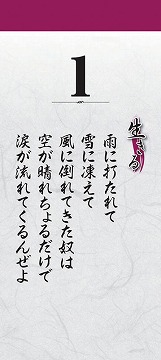 1
生きる
雨に打たれて
雪に凍えて
風に倒れてきた奴は
空が晴れちょるだけで
涙が流れてくるんぜよ